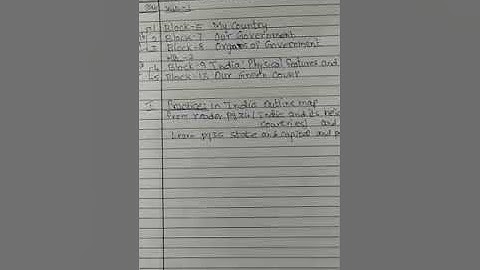 1 Block-6 My Country
2 Block-7 Our Government
3 Block-8 Organs of Government
4 Block-9 India: Physical features and
5 Block-13 Our Green Cover
I Practices in India Outline map
from reader pg 24 / India and its
countries) and
Learn pg 25 state and capital and